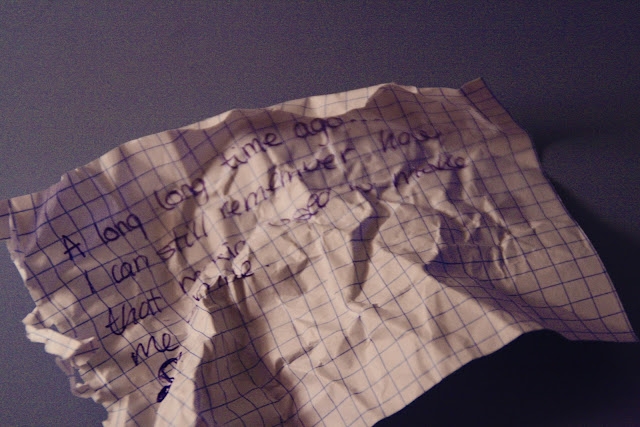 A long long time ago...
I can still remember how
that music used to make
me smile.